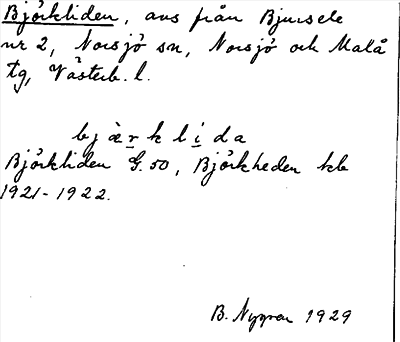 Björkliden, avs från Bjursele
nr 2, Norsjö sn, Norsjö och Malå
tg, Västerb. l.
bjärklida
Björkliden G. 50, Björkheden kb
1921-1922.
B. Nygren 1929